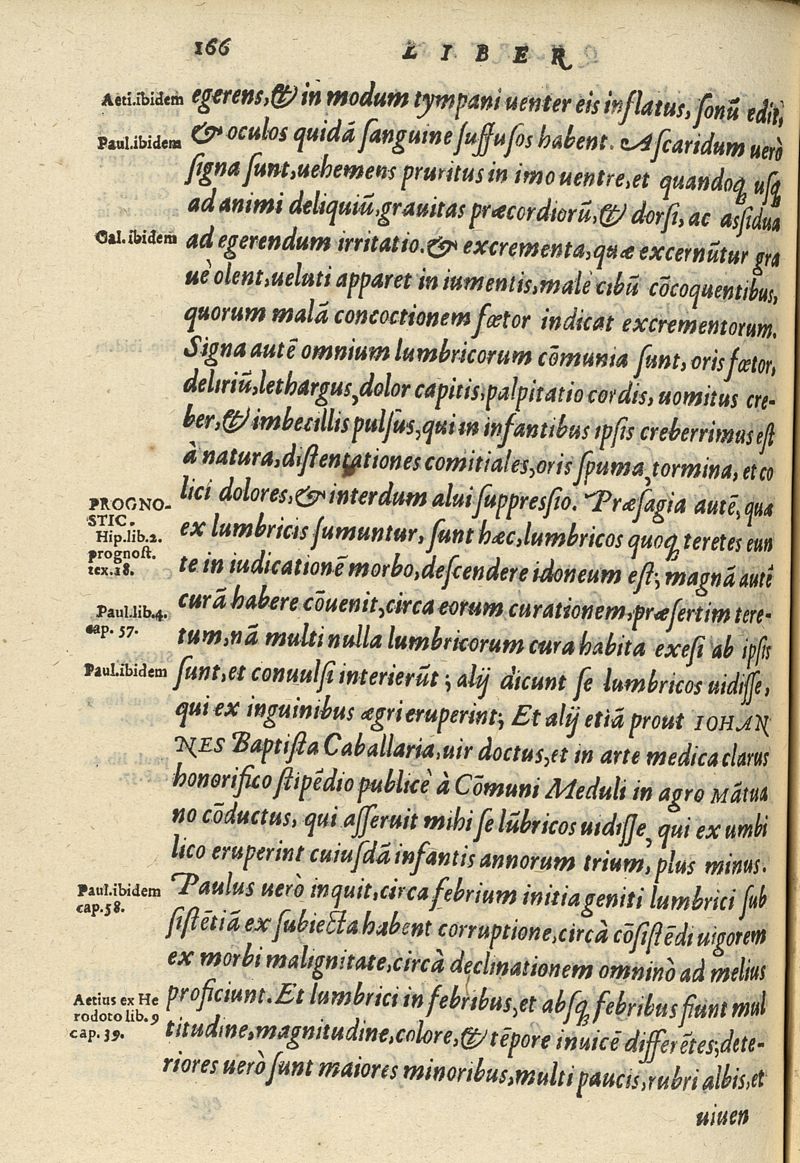 166 LIBER
Aeti.ibidem egerens, & in modum tympani uenter eis inflatus, sonū edit,
Paul.ibidem & oculos quidā sanguine suffusos habent. Ascaridum uerò
signa sunt, uehemens pruritus in imo uentre, et quandoq; usq;
ad animi deliquiū, grauitas præcordiorū, & dorsi, ac assidua
Gal.ibidem ad egerendum irritatio. & excrementa, quæ excernūtur gra
uè olent, ueluti apparet in iumentis, male cibū cōcoquentibus,
quorum malā concoctionem fœtor indicat excrementorum.
Signa autē omnium lumbricorum cōmunia sunt, oris fœtor,
deliriū, lethargus, dolor capitis, palpitatio cordis, uomitus cre-
ber, & imbecillis pulsus, qui in infantibus ipsis creberrimus est
à natura, distentationes comitiales, oris spuma, tormina, et co
lici dolores, & interdum alui suppressio. Præsagia autē, qua
PROGNO-
STIC.
Hip.lib.2.
prognost.
tex.18.
ex lumbricis sumuntur, sunt hæc, lumbricos quoq; teretes eun
te in iudicationē morbo, descendere idoneum est; magnā autē
Paul.lib.4.
cap. 57.
curā habere cōuenit, circa eorum curationem, præsertim tere-
tum, nā multi nulla lumbricorum cura habita exesi ab ipsis
Paul.ibidem sunt, et conuulsi interierūt; alij dicunt se lumbricos uidisse,
qui ex inguinibus ægri eruperint; Et alij etiā prout IOHAN
NES Baptista Caballaria, uir doctus, et in arte medica clarus
honorifico stipēdio publicè à Cōmuni Meduli in agro Mātua
no cōductus, qui asseruit mihi se lūbricos uidisse, qui ex umbi
lico eruperint cuiusdā infantis annorum trium, plus minus.
Paul.ibidem
cap.58.
Paulus uerò inquit, circa febrium initia geniti lumbrici sub
sistētiā ex subiecta habent corruptione, circà cōsistēdi uigorem
ex morbi malignitate, circà declinationem omninò ad melius
Aetius ex He
rodoto lib.9
cap. 39.
proficiunt. Et lumbrici in febribus, et absq; febribus fiunt mul
titudine, magnitudine, colore, & tēpore inuicē differētes; dete-
riores uerò sunt maiores minoribus, multi paucis, rubri albis, et
uiuen